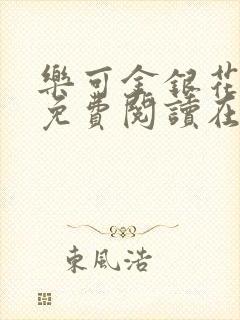 樂可金銀花
免費閱讀在
東風浩